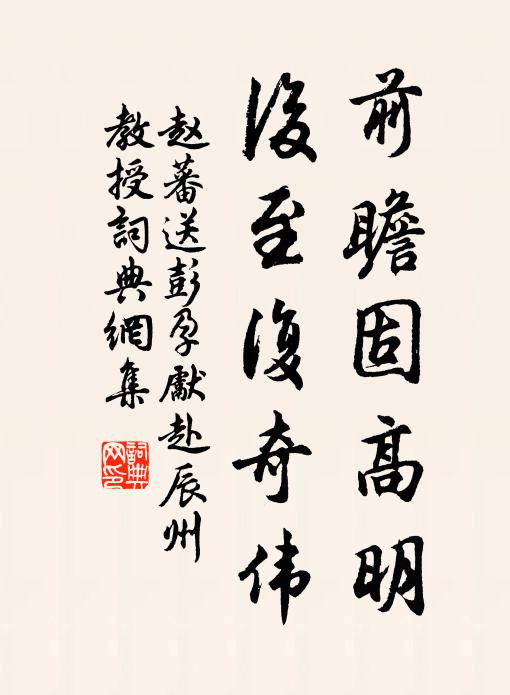 前瞻固高明
後至復奇伟
赵蕃送彭孕獻赴辰州
教授詞典網集
詞典网印